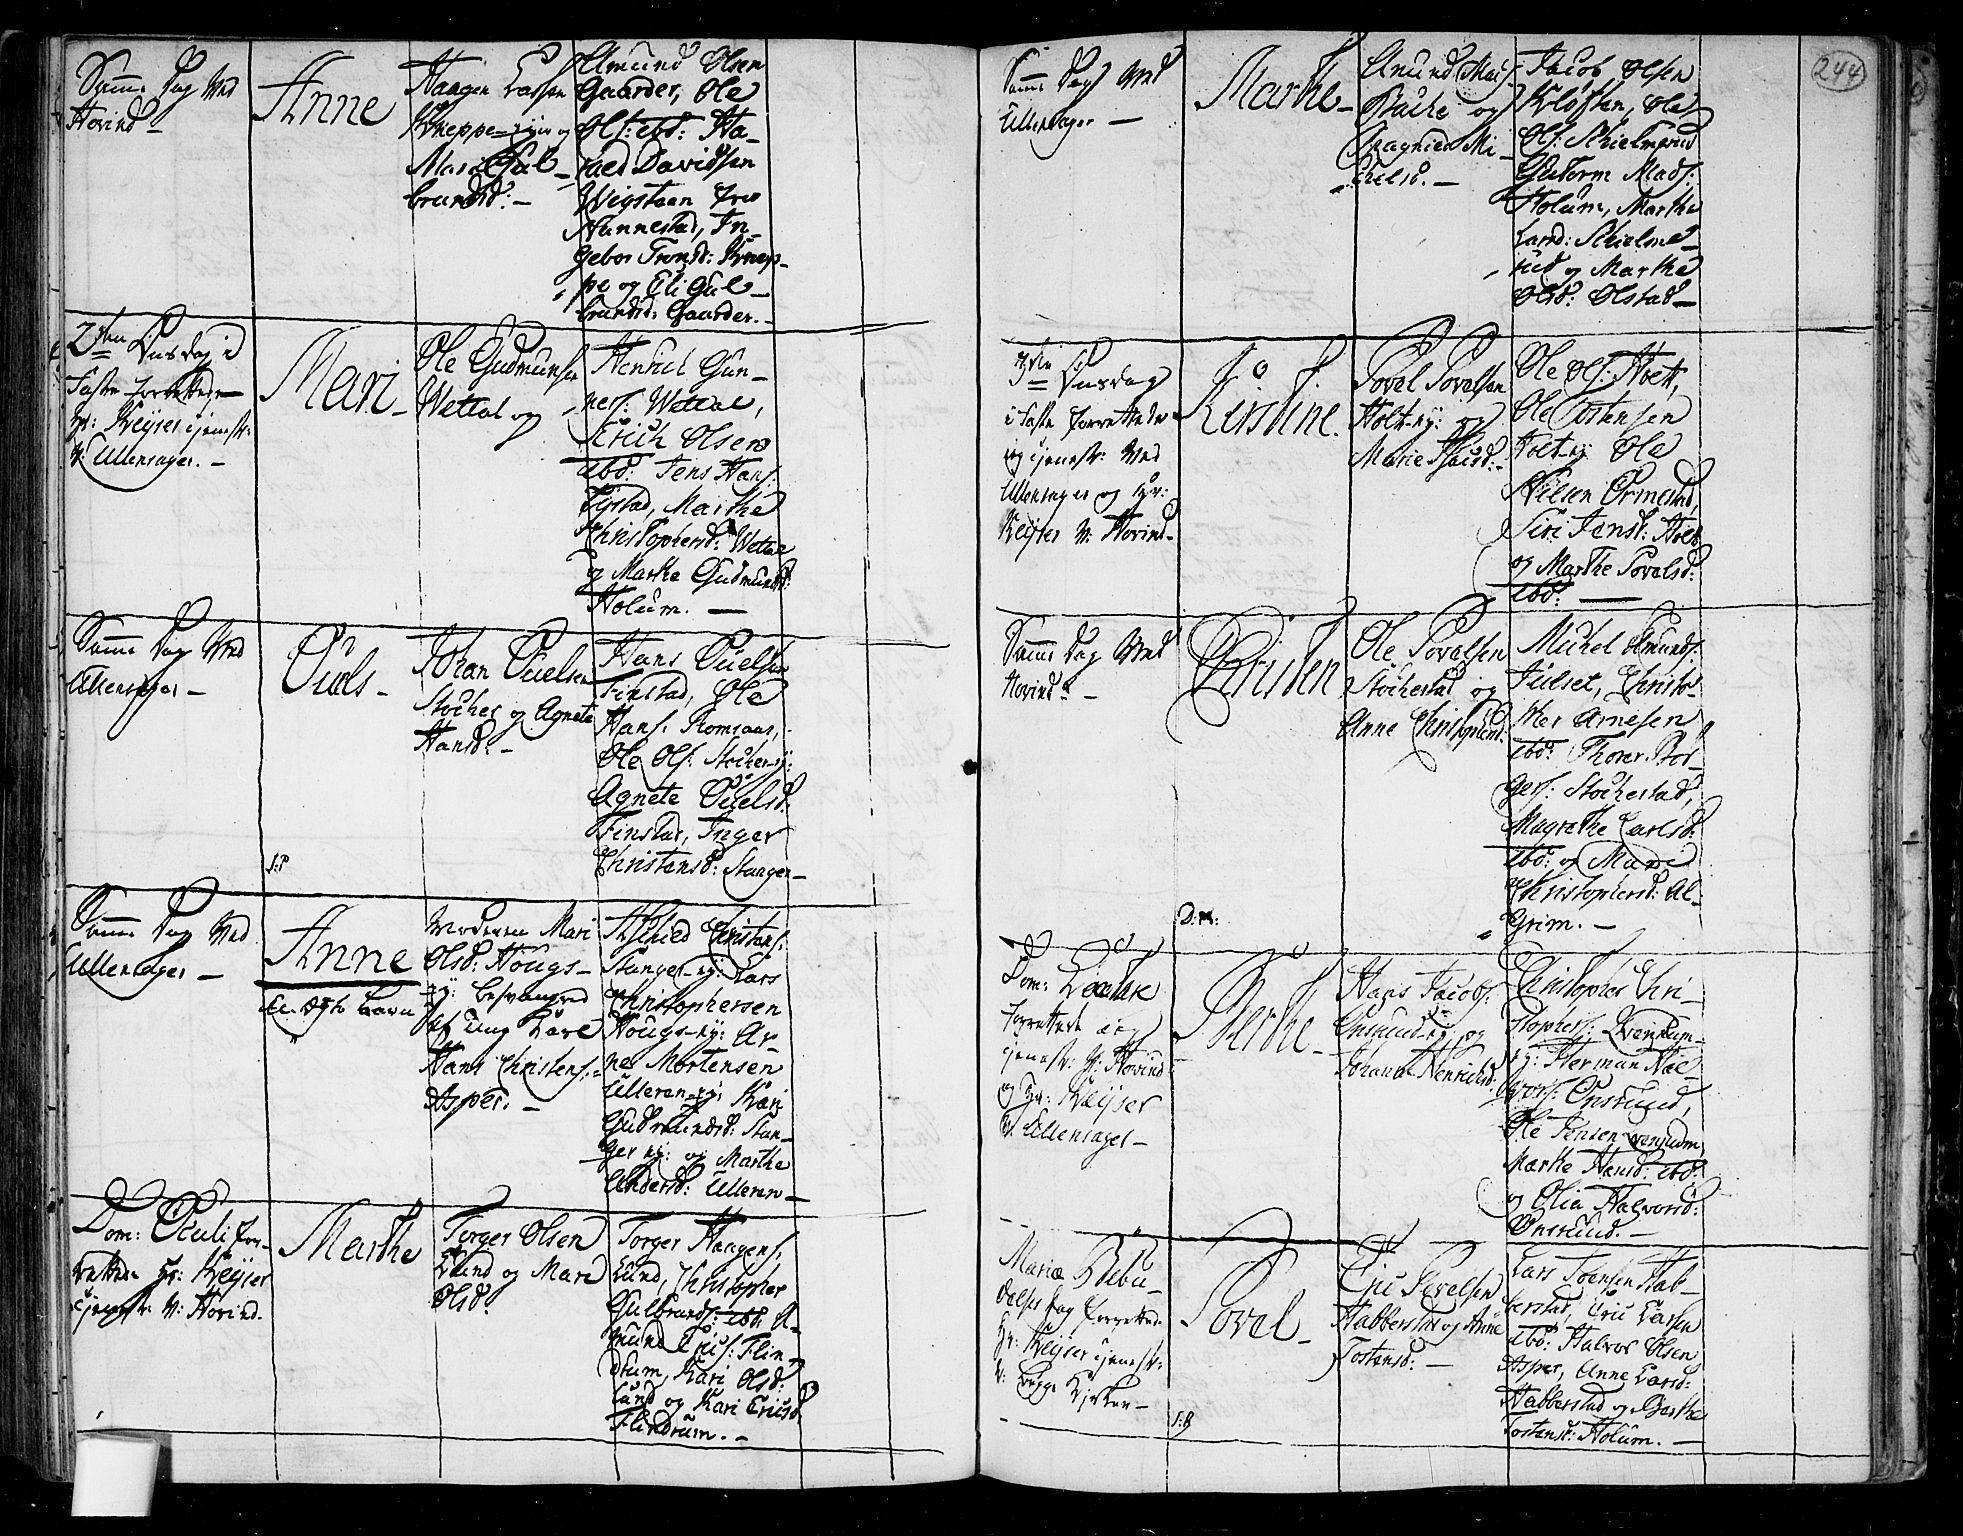 Samme Dag Ved
Hovind –
Anne
Haagen Larsen
Kneppe-eye og
Mari Gul-
brandsd: –
Amund Olsen
Gaarder, Ole
Ols: ibd: Ha-
Davidsen
Wigstaen fra
Nannestad, In-
gebor Tronsd: Knep-
pe og Eli Gul-
brandsd: Gaarder. –
2den Søndag i
Faste forrettede
Hr: Keyser tjenest:
v: Ullensager. –
Mari
Ole Gudmunsen
Wettal og
Henrich Gun-
ners: Wettal,
Erich Olsen
ibd: Jens Hans:
Marthe
Christophersd: Wettal
og Marthe Gudmundsd:
Holum. –
Samme Dag Ved
Ullensager –
Ouels –
S:P
Johan Ouelsen
Stocher og Agnete
Hansd: –
Hans Ouelsen
Finstad, Ole
Hans: Romsaas,
Ole Ols: Stocher-ey:
Agnete Ouelsd:
Finstad, Inger
Christensd: Stanger –
Samme Dag Ved
Ullensager –
Anne
Et Barn
Moderen Mari
Olsd: Hougs-
ey: besvangred
af Ung Karl
Hans Christens:
Asper. –
Christens:
Stanger-ey: Lars
Christophersen
Hougs-ey: Ar-
ne Mortensen
Ulleren-ey: Kari
Gudmundsd: Stan-
ger ey: og Marthe
Andersd: Ulleren –
Dom: Oculi for-
rettede Hr: Keyser
tjenest: v: Hovind.
Marthe
Torger Olsen
Lund og Mari
Olsd:
Torger Haagens:
Lund, Christopher
Gulbrands: ibd: A-
mund Erics: Flin-
drum, Kari Olsd:
Lund og Kari Ericsd:
Flindrum. –
244
Samme Dag Ved
Ullensager –
Marthe –
Amund
Bache og
Ragnild Mi-
chelsd. –
Jacob Olsen
Kløften, Ole
Ols: Schielmerud
Guttorm Mads:
Holum, Marthe
Larsd: Schielme-
rud og Marthe
Olsd: Olstad –
3die Søndag
i Faste forrettede
jeg tjenest: Ved
Ullensager og Hr:
Keyser v: Hovind –
Kirstine.
Povel Povelsen
Holt-ey: og
Marie
Ole Ols: Holt,
Ole Tostensen
Holt-ey Ole
Nilsen Ormestad,
Siri Jensd: Holt
og Marthe Povelsd:
ibd: –
Samme Dag Ved
Hovind –
Christen
D:M:
Ole Povelsen
Stochestad og
Anne Christophersd:
Michel Amunds:
Julset, Christo-
pher Arnesen
ibd: Thorer Bor-
gers: Stochestad,
Magrethe Carlsd:
ibd: og Mari
Christophersd: Al-
Grim. –
Dom: Lætare
forrettede jeg
tjenest: v: Hovind
og Hr: Keyser
v: Ullensager –
Berthe –
Hans Jacobs:
Onsrud-ey: og
Johanne Henrichsd:
Christopher Chri-
stophers: Qvendum-
ey: Herman Hal-
vors: Onsrud,
Ole Jensen Qvendum
Marthe Hansd: ibd:
og Olia Halvorsd:
Onsrud. –
Mariæ Bebu-
delses Dag forrettede
Hr: Keyser tjenest:
v: begge Kirker –
Povel –
S:B
Eric Povelsen
Habberstad og Anne
Tostensd: –
Lars Toersen Hab-
berstad, Eric Larsen
ibd: Halvor Olsen
Asper, Anne Larsd:
Habberstad og Berthe
Tostensd: Holum. –